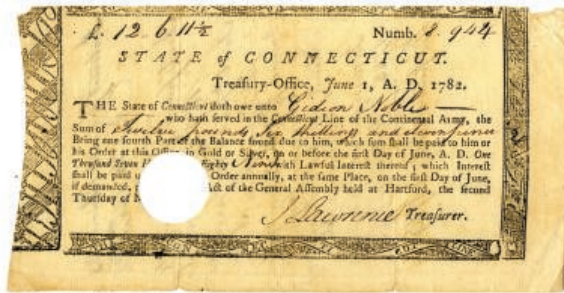 £. 12 6 11½ Numb. 8.944
STATE of CONNECTICUT.
Treasury-Office, June 1, A. D. 1782.
THE State of Connecticut doth owe unto Gideon Noble
who hath served in the Connecticut Line of the Continental Army, the
Sum of Twelve pounds Six Shillings and eleven pence
Being one fourth Part of the Balance found due to him, which sum shall be paid to him or
his Order at this Office, in Gold or Silver, on or before the first Day of June, A. D. One
Thousand Seven Eighty with Lawful Interest thereof; which Interest
shall be paid Order annually, at the same Place, on the first Day of June,
if demanded, Act of the General Assembly held at Hartford, the second
Thursday of
J Lawrence Treasurer.